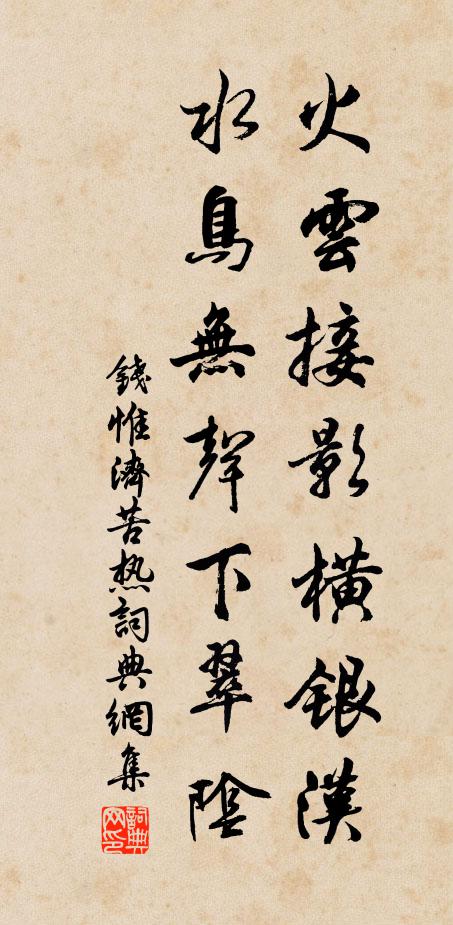 火雲接影橫銀漢
水鳥無聲下翠陰
錢惟濟苦热詞典網集
詞典網印